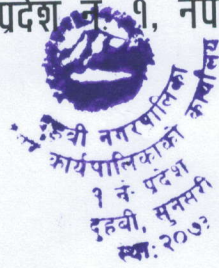 प्रदेश नं. १, नेपा
दुहवी नगरपालिका
नगर कार्यपालिकाको कार्यालय
१ नं. प्रदेश
दुहवी, सुनसरी
स्था: २०७३